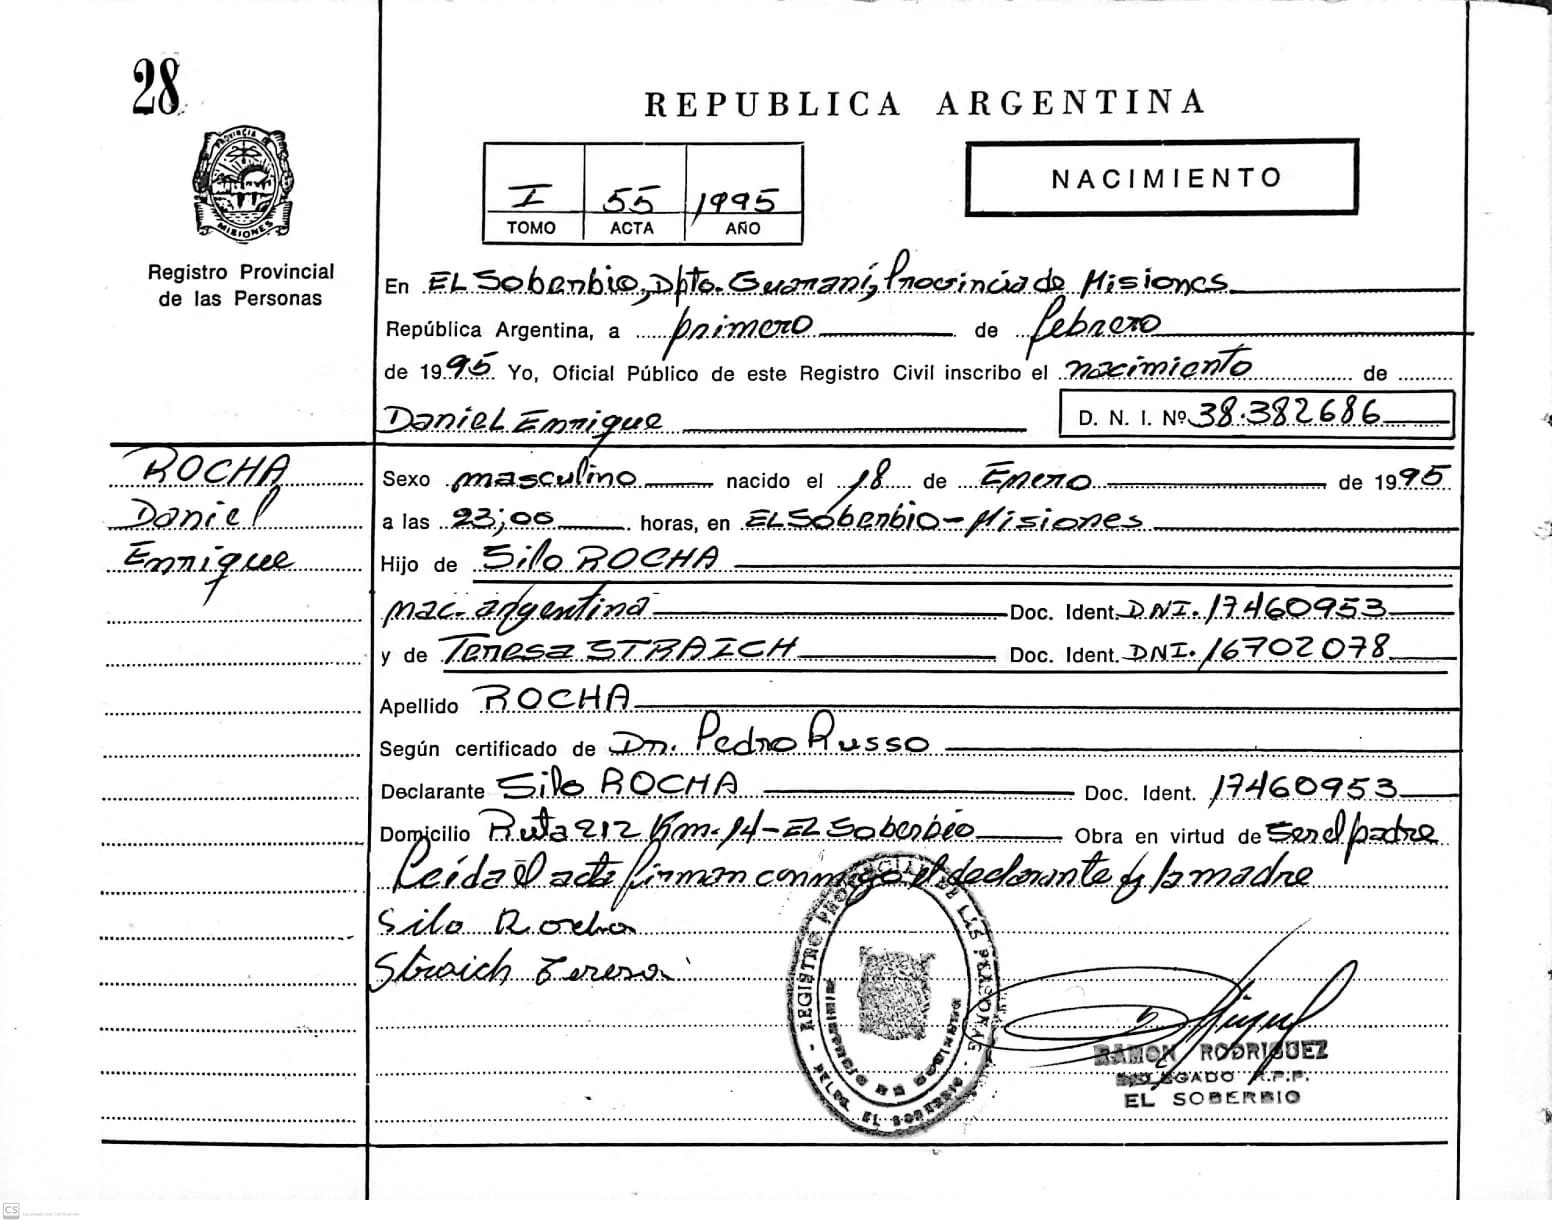 28
REPUBLICA ARGENTINA
PROVINCIA
MISIONES
I 55 1995
TOMO ACTA AÑO
NACIMIENTO
Registro Provincial
de las Personas
En EL Soberbio, Dpto. Guaraní, Provincia de Misiones
República Argentina, a primero de febrero
de 1995 Yo, Oficial Público de este Registro Civil inscribo el nacimiento de
Daniel Enrique D. N. I. Nº 38.382686
ROCHA
Daniel
Enrique
Sexo masculino nacido el 18 de Enero de 1995
a las 23;00 horas, en EL Soberbio - Misiones
Hijo de Silo ROCHA
nac. argentina Doc. Ident. DNI. 17460953
y de Teresa STRAICH Doc. Ident. DNI. 16702078
Apellido ROCHA
Según certificado de Dr. Pedro Russo
Declarante Silo ROCHA Doc. Ident. 17460953
Domicilio Ruta 212 Km. 14 - EL Soberbio Obra en virtud de Ser el padre
Leída el acta firman conmigo el declarante y la madre
Silo Rocha
Straich Teresa
REGISTRO PROVINCIAL DE LAS PERSONAS
RAMON RODRIGUEZ
DELEGADO R.P.P.
EL SOBERBIO
CS